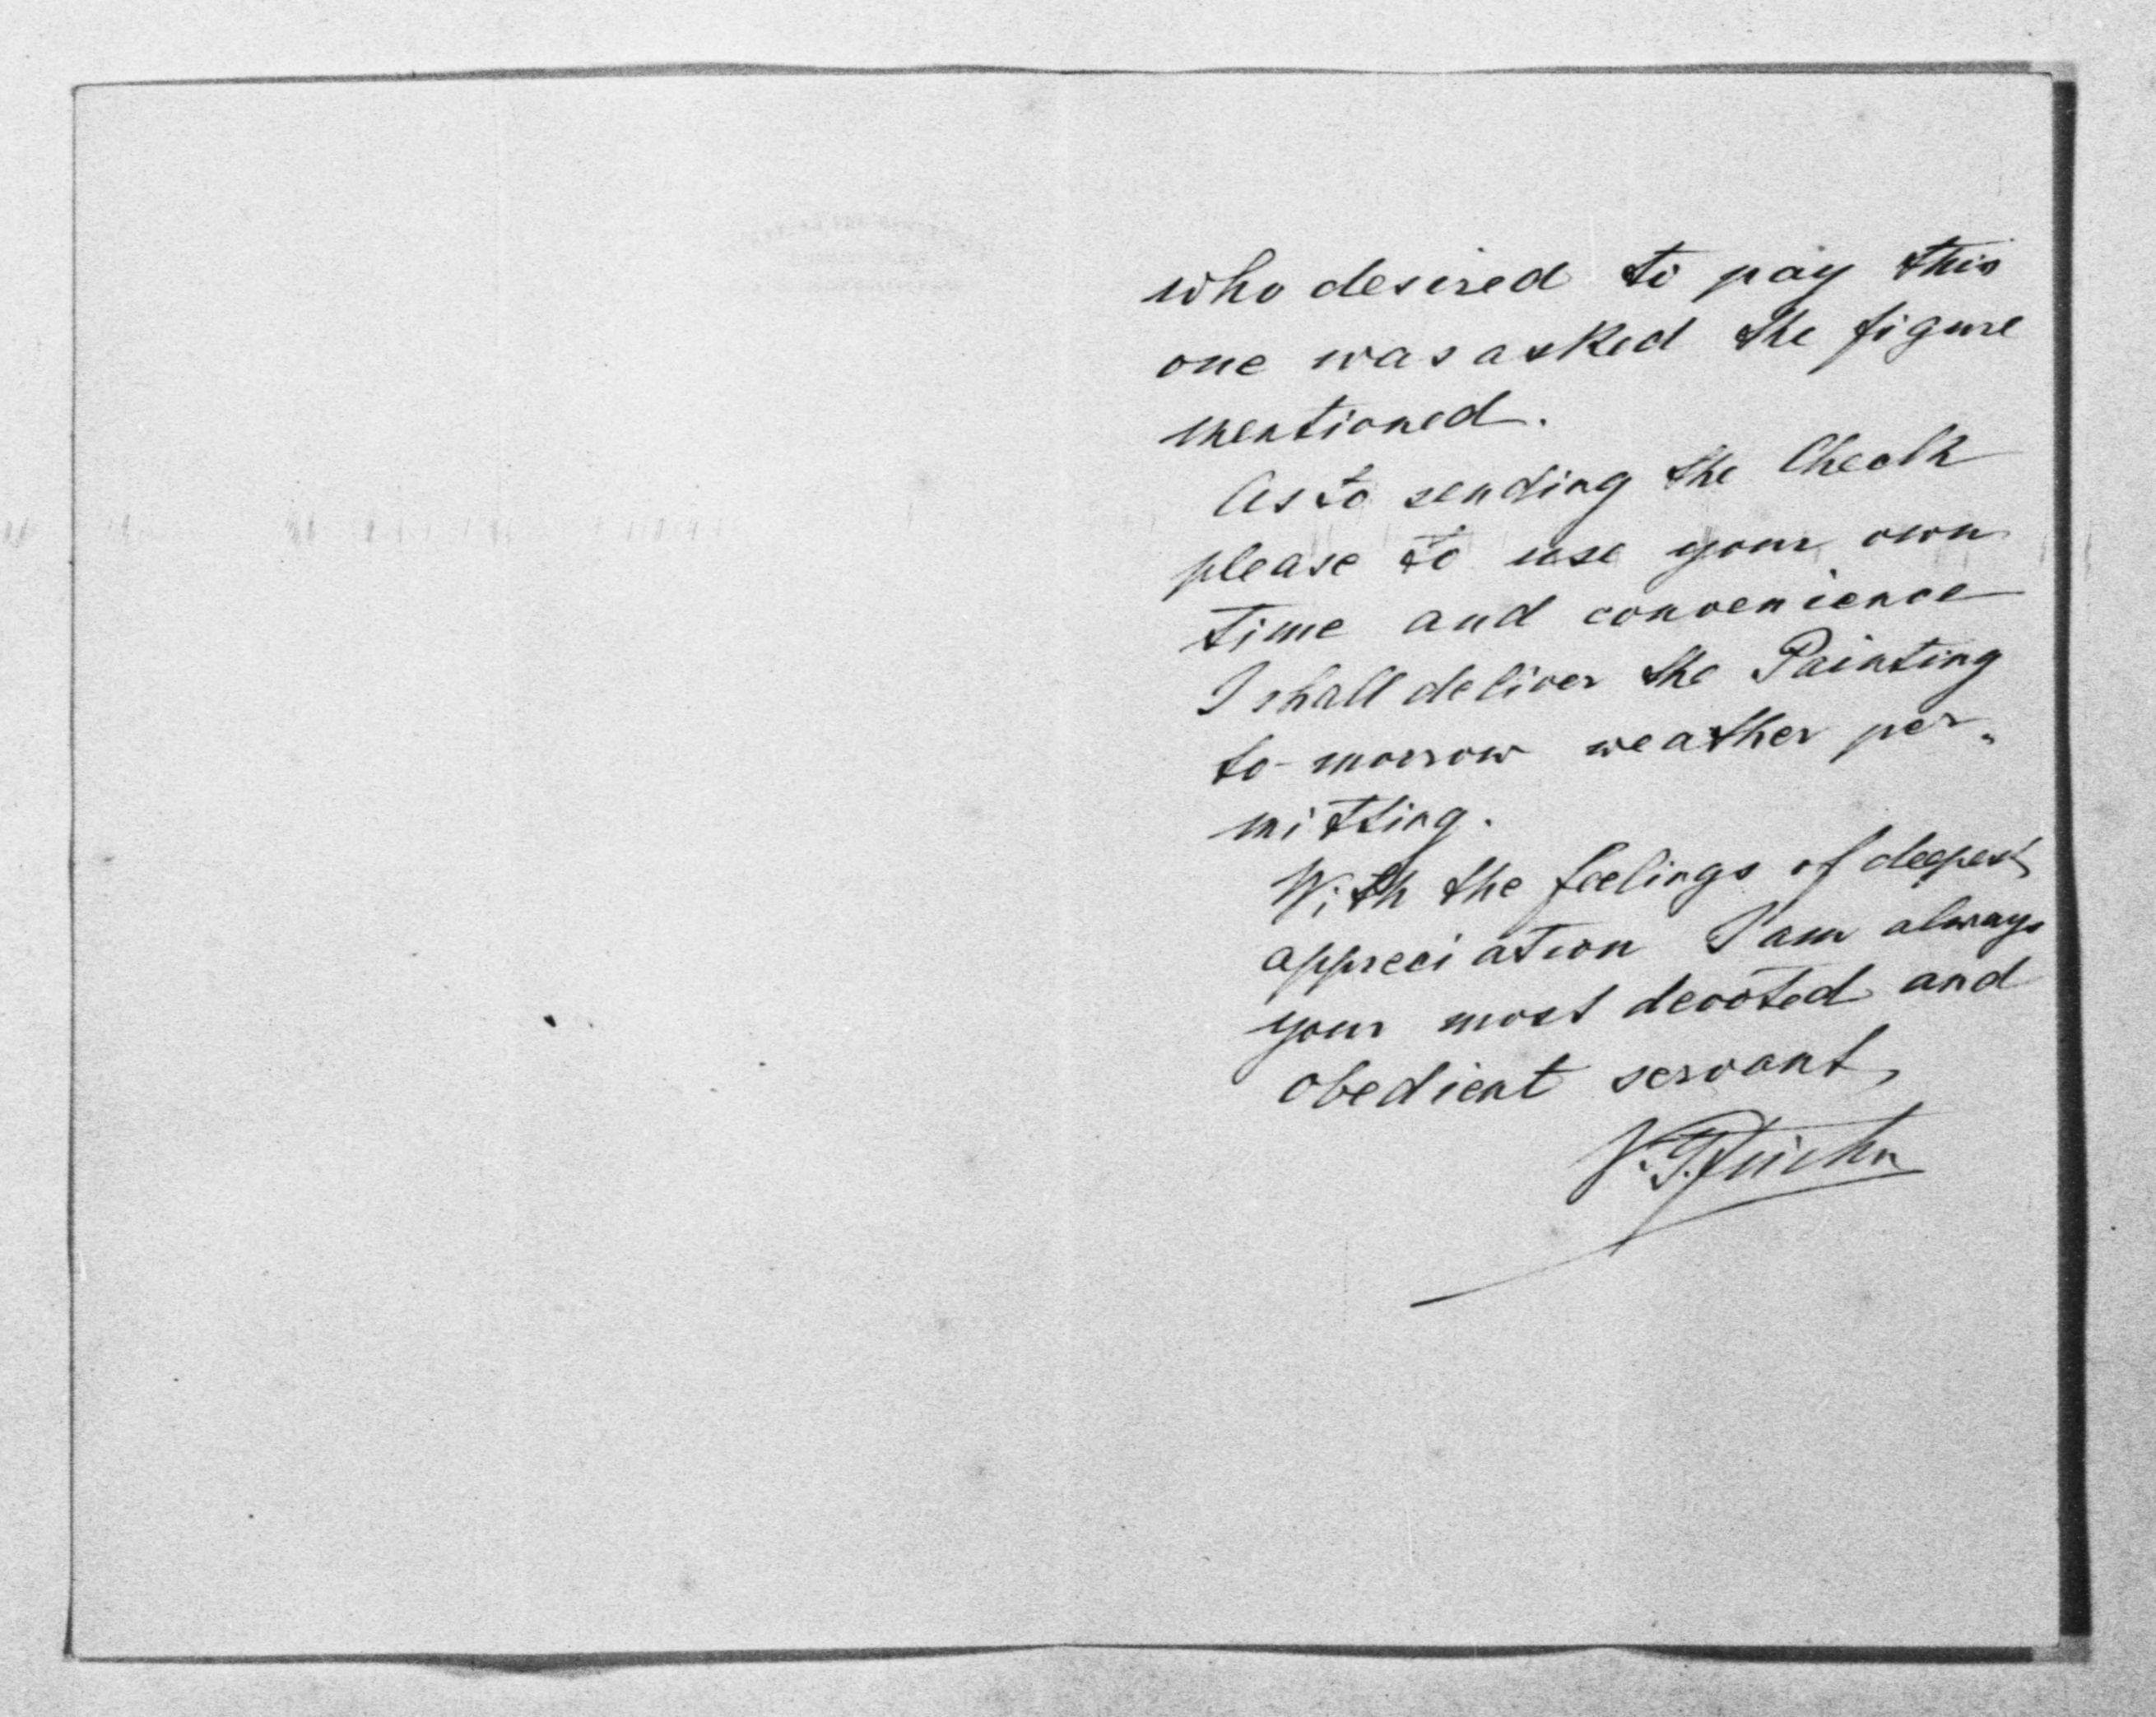 who desired to pay this
one was asked the figure
mentioned.
As to sending the Check
please to use your own
time and convenience
I shall deliver the Painting
to-morrow weather per„
mitting.
With the feelings of deepest
appreciation I am always
your most devoted and
obedient servant,